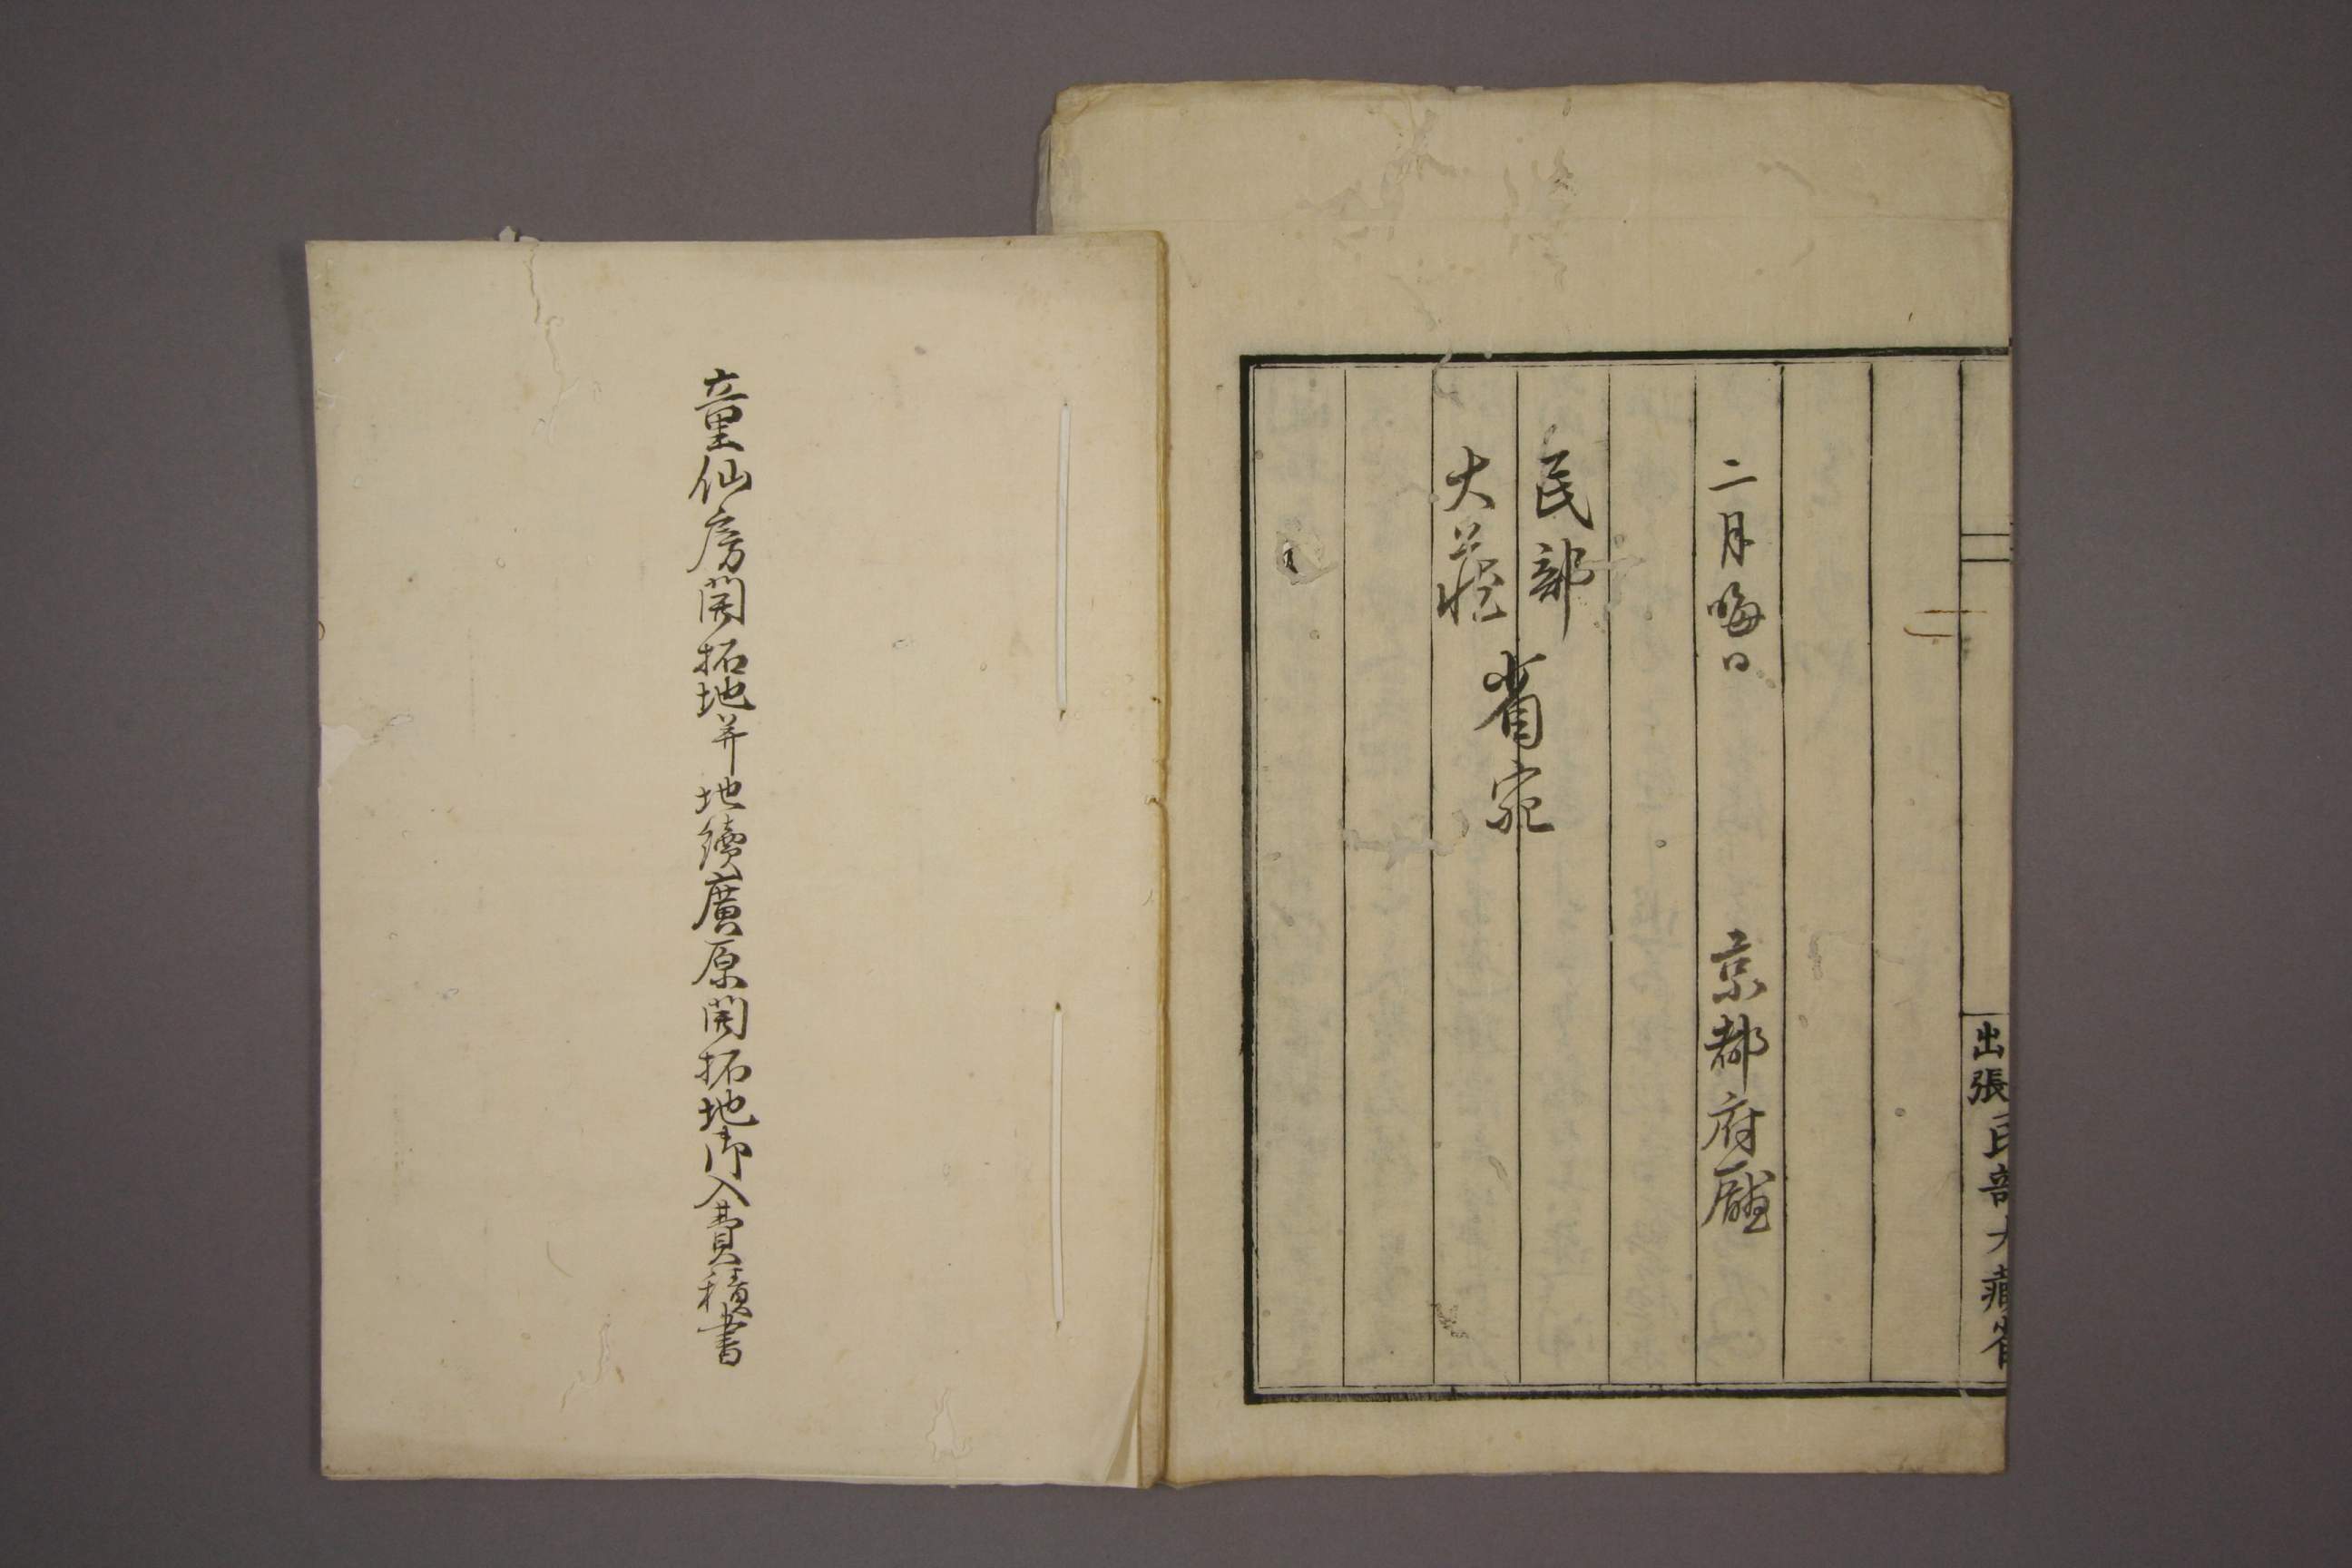 出張民部大藏省
二月晦日　京都府廳
民部
大藏
省宛
童仙房開拓地并地續廣原開拓地御入費積書